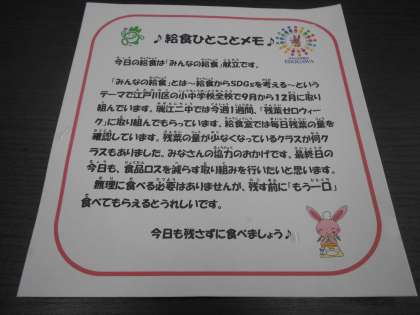 ♪給食ひとことメモ♪
今日の給食は「みんなの給食」献立です。
「みんなの給食」とは~給食からSDGsを考える~という
テーマで江戸川区の小中学校全校で9月から12月に取り
組んでいます。瑞江二中では今週1週間、「残菜ゼロウィー
ク」に取り組んでもらっています。給食室では毎日残菜の量を
確認しています。残菜の量が少なくなっているクラスが何ク
ラスもありました。みなさんの協力のおかげです。最終日の
今日も、食品ロスを減らす取り組みを行いたいと思います。
無理に食べる必要はありませんが、残す前に「もう一口」
食べてもらえるとうれしいです。
今日も残さずに食べましょう♪